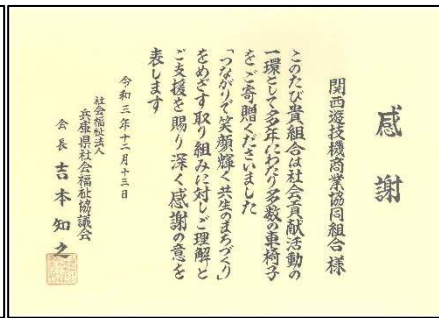 感謝
関西遊技機商業協同組合様
このたび貴組合は社会貢献活動の
一環として多年にわたり多数の車椅子
をご寄贈くださいました
「つながりで笑顔輝く共生のまちづくり」
をめざす取り組みに対しご理解と
ご支援を賜り深く感謝の意を
表します
令和三年十二月十三日
社会福祉法人
兵庫県社会福祉協議会
会長 吉本知之